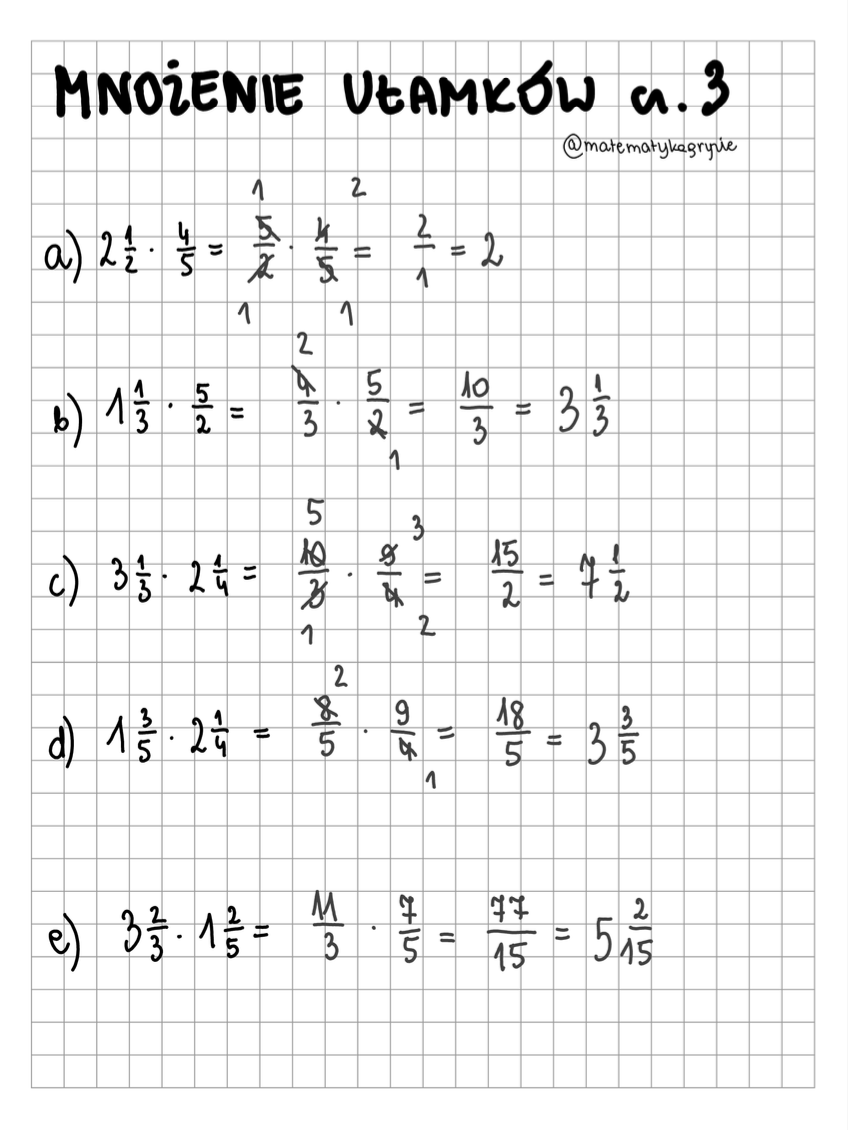 MNOŻENIE UŁAMKÓW cz. 3
@matematykagryzie
a) 2 1/2 · 4/5 = 5/2 · 4/5 = 2/1 = 2
1 2
1 1
b) 1 1/3 · 5/2 = 4/3 · 5/2 = 10/3 = 3 1/3
2
1
c) 3 1/3 · 2 1/4 = 10/3 · 9/4 = 15/2 = 7 1/2
5 3
1 2
d) 1 3/5 · 2 1/4 = 8/5 · 9/4 = 18/5 = 3 3/5
2
1
e) 3 2/3 · 1 2/5 = 11/3 · 7/5 = 77/15 = 5 2/15